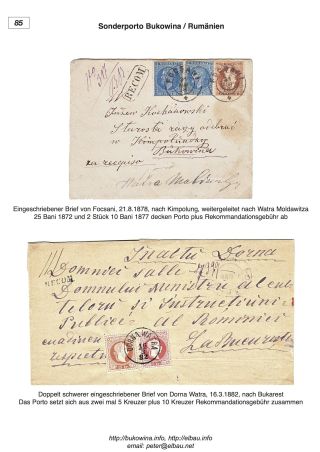 85
Sonderporto Bukowina / Rumänien
RECOM
Józew Kochanowski
Starosta
w Kimpolungu
Bukowina
za recepiso
Watra
Eingeschriebener Brief von Focsani, 21.8.1878, nach Kimpolung, weitergeleitet nach Watra Moldawitza
25 Bani 1872 und 2 Stück 10 Bani 1877 decken Porto plus Rekommandationsgebühr ab
Inaltŭ Dorna
RECOM
Domniei salle
Domnului Ministru al cul
telorŭ si Instructiuni
Publice al Romaniei
DORNA WATRA
La Bucuresti
Doppelt schwerer eingeschriebener Brief von Dorna Watra, 16.3.1882, nach Bukarest
Das Porto setzt sich aus zwei mal 5 Kreuzer plus 10 Kreuzer Rekommandationsgebühr zusammen
http://bukowina.info, http://eibau.info
email: peter@eibau.net